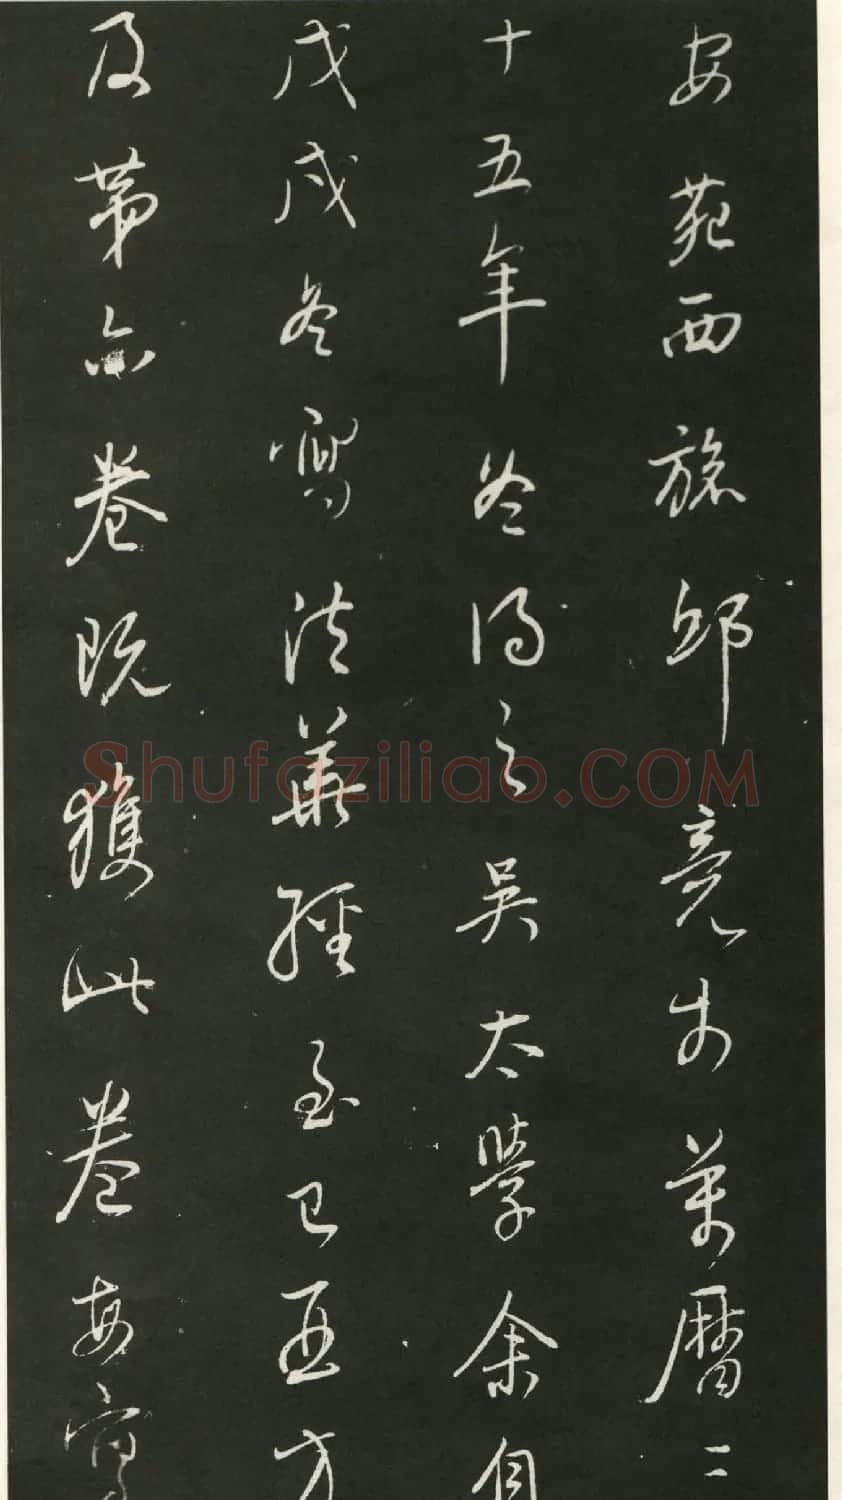 安苑西旅邸竟於萬曆二
十五年冬得之吳太學余自
戊戌冬寫法華經至己亥方
及第六卷既獲此卷每寫
Shufaziliao.COM